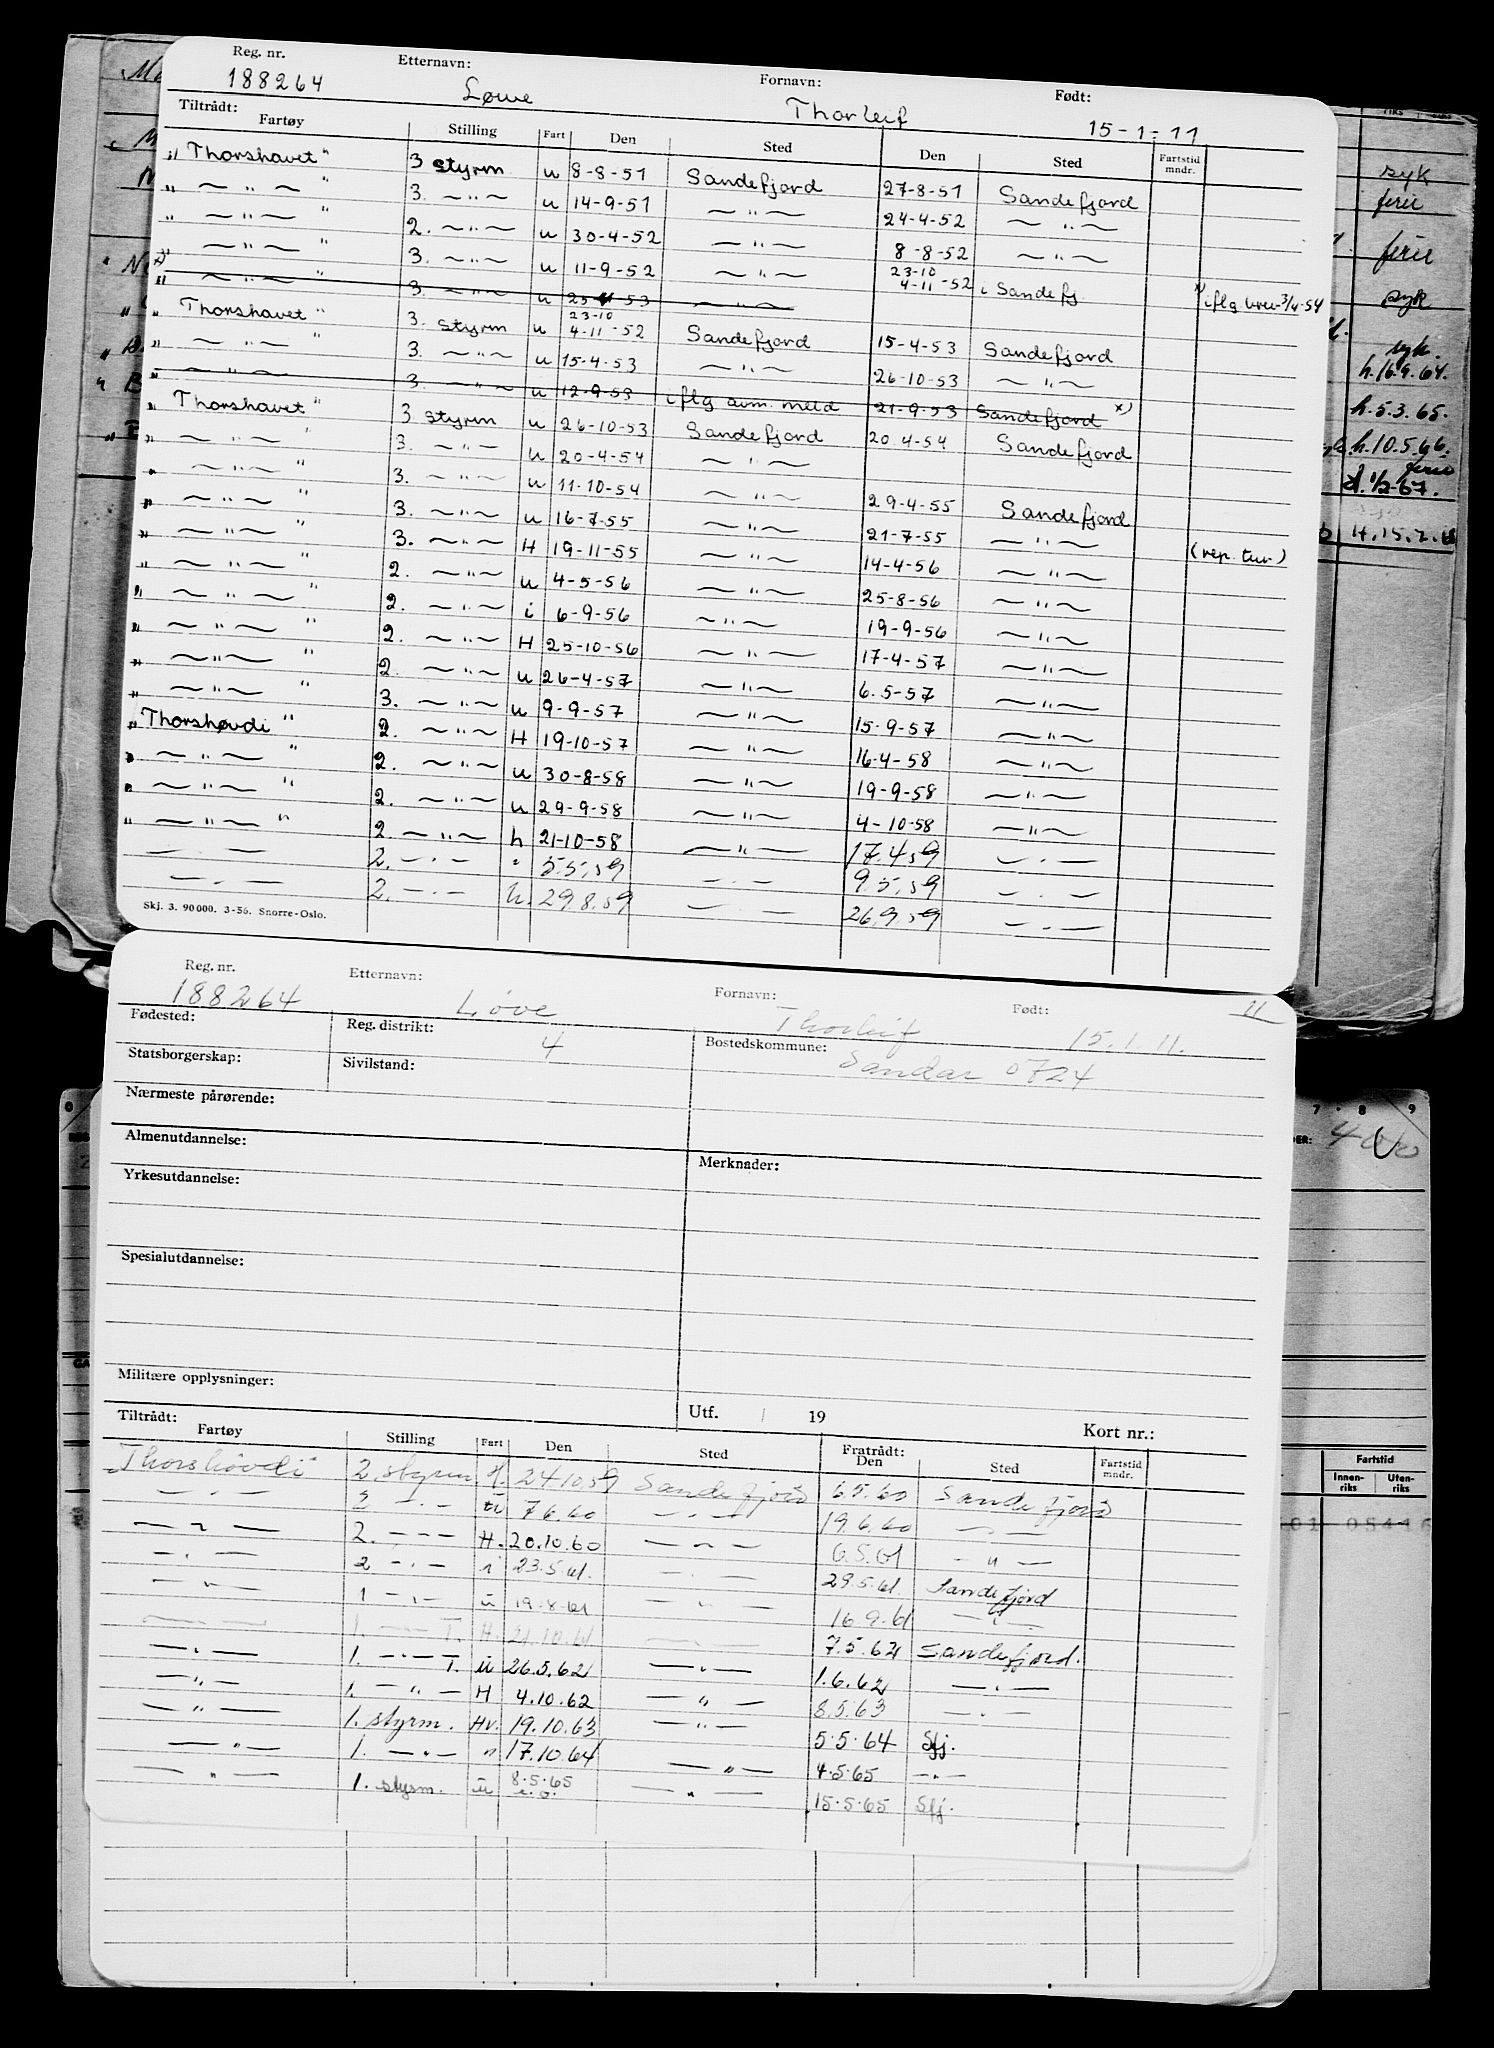 Reg. nr. Etternavn: Fornavn: Født:
188264 Løwe Thorleif 15-1-11
Tiltrådt:
Fartøy Stilling Fart Den Sted Den Sted Fartstid mndr.
"Thorshavet" 3 styrm u 8-8-51 Sandefjord 27-8-51 Sandefjord
" — " — " 3. — " — u 14-9-51 — " — 24-4-52 — " —
" — " — " 2. — " — u 30-4-52 — " — 8-8-52 — " —
" — " — " 3. — " — u 11-9-52 — " — 23-10 4-11-52 i Sandefj
x) " — " — " 3. — " — u 25 53 — " — x) iflg brev 3/4-54
"Thorshavet" 3. styrm u 23-10 4-11-52 Sandefjord 15-4-53 Sandefjord
" — " — " 3. — " — u 15-4-53 — " — 26-10-53 — " —
" — " — " 3. — " — u 12-9-53 iflg avm. meld 21-9-53 Sandefjord x)
"Thorshavet" 3 styrm u 26-10-53 Sandefjord 20-4-54 Sandefjord
" — " — " 3. — " — u 20-4-54 — " —
" — " — " 3. — " — u 11-10-54 — " — 29-4-55 Sandefjord
" — " — " 3. — " — u 16-7-55 — " — 21-7-55 — " — (rep. tur)
" — " — " 3. — " — H 19-11-55 — " — 14-4-56 — " —
" — " — " 2. — " — u 4-5-56 — " — 25-8-56 — " —
" — " — " 2. — " — i 6-9-56 — " — 19-9-56 — " —
" — " — " 2. — " — H 25-10-56 — " — 17-4-57 — " —
" — " — " 2. — " — u 26-4-57 — " — 6.5-57 — " —
" — " — " 3. — " — u 9-9-57 — " — 15-9-57 — " —
"Thorshøvdi" 2. — " — H 19-10-57 — " — 16-4-58 — " —
" — " — " 2. — " — u 30-8-58 — " — 19-9-58 — " —
" — " — " 2. — " — u 29-9-58 — " — 4-10-58 — " —
" — " — " 2. — " — h 21-10-58 — " — 17.4.59 — . —
— . — 2. — . — " 5.5.59 — . — 9.5.59 — . —
— . — 2. — . — u. 29.8.59 — — 26.9.59 — . —
Skj. 3. 90000. 3-56. Snorre-Oslo.
Reg. nr. Etternavn: Fornavn: Født: 11
188264 Løve Thorleif 15.1.11.
Fødested: Reg. distrikt: 4 Bostedskommune: Sandar 0724
Statsborgerskap: Sivilstand:
Nærmeste pårørende:
Almenutdannelse: Merknader:
Yrkesutdannelse:
Spesialutdannelse:
Militære opplysninger:
Utf. / 19 Kort nr.:
Tiltrådt: Fratrådt:
Fartøy Stilling Fart Den Sted Den Sted Fartstid mndr.
"Thorshövdi" 2. styrm H. 24.10.59 Sandefjord 6.5.60 Sandefjord
— . — 2 — . — u 7.6.60 — . — 19.6.60 — . —
— " — 2. — . — H. 20.10.60 — " — 6.5.61 — " —
— . — 2 — . — i 23.5.61. — . — 29.5.61. Sandefjord
— " — 1 — . — u 19.8.61 — " — 16.9.61 — " —
— . — 1. — — T. H. 21.10.61 — . — 7.5.62 Sandefjord.
— . — 1. — . — T. u 26.5.62 — . — 1.6.62 — . —
— " — 1. — " — H 4.10.62 — " — 8.5.63 — . —
— " — 1. styrm. Hv. 19.10.63 — " — 5.5.64 Sfj.
— " — 1. — " — " 17.10.64 — " — 4.5.65 — . —
— " — 1. styrm. u 8.5.65 — " — 15.5.65 Sfj.
syk
ferie
ferie
syk
syk.
h. 16.9.64.
h. 5.3.65.
h. 10.5.66.
ferie
d. 1/2-67.
7 8 9
Fartstid
Innen-riks Uten-riks
01 05446